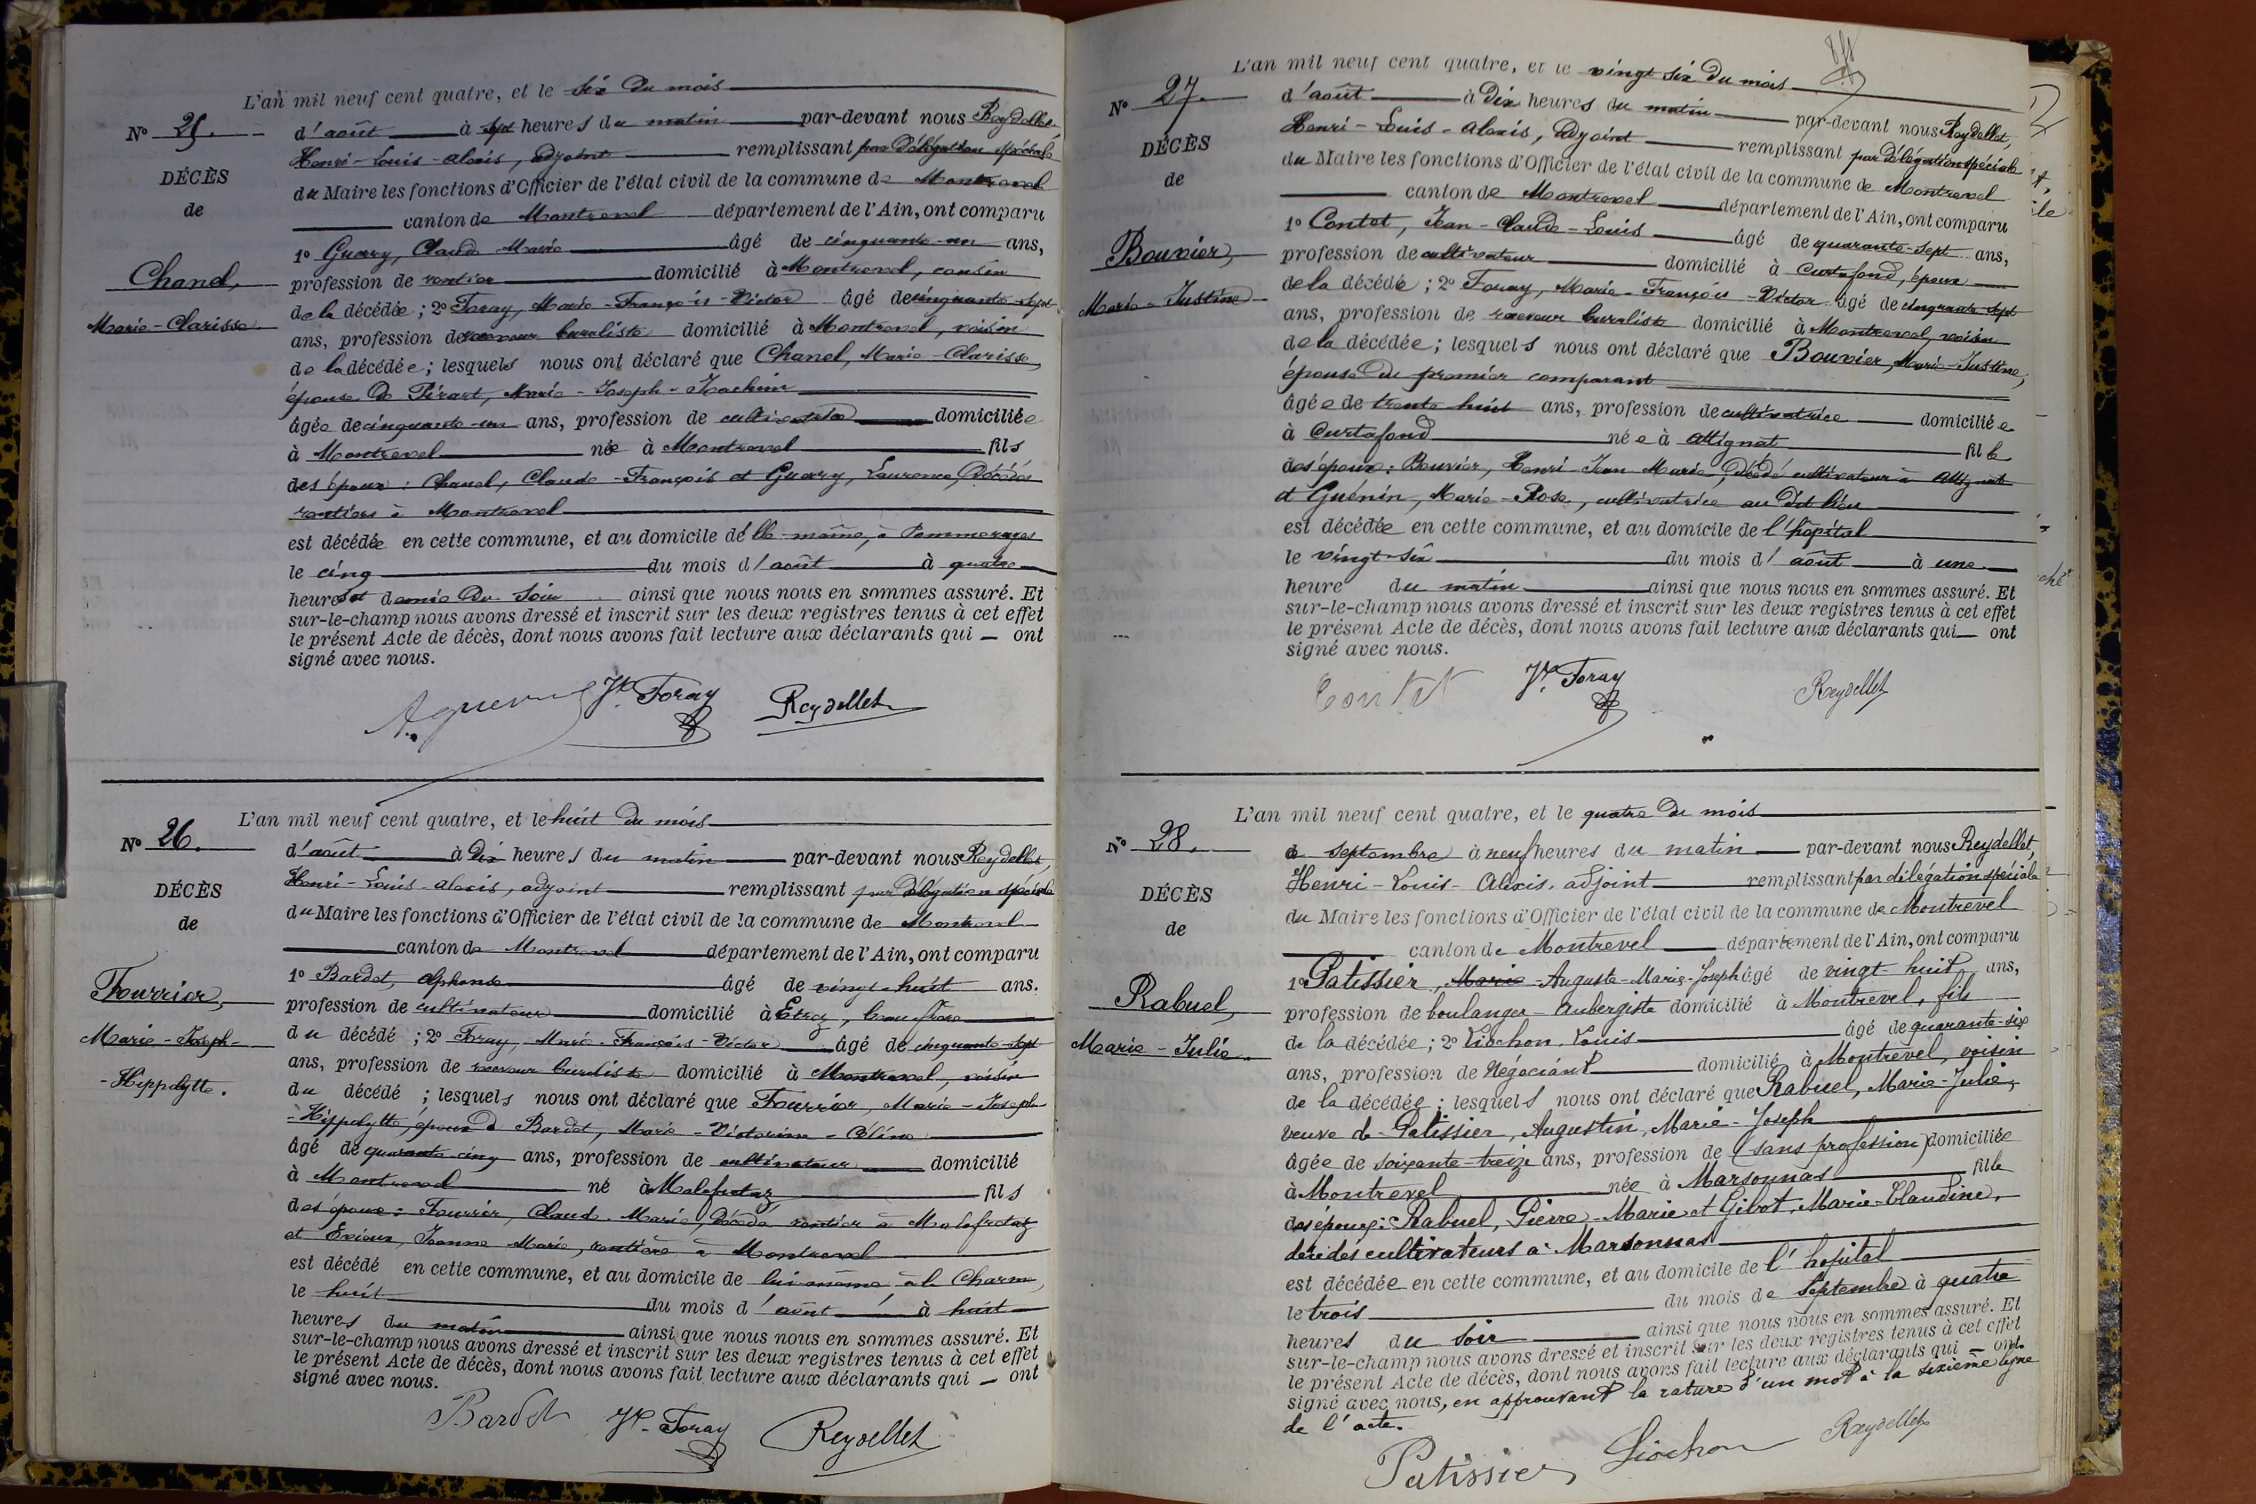 L'an mil neuf cent quatre, et le six du mois
N° 25.
d'août à sept heures du matin par-devant nous Reydellet
Henri-Louis-Alexis, adjoint remplissant par délégation spéciale
DÉCÈS
du Maire les fonctions d'Officier de l'état civil de la commune de Montrevel
de
canton de Montrevel département de l'Ain, ont comparu
1° Guerry, Claude Marie âgé de cinquante-un ans,
Chanel,
profession de rentier domicilié à Montrevel, cousin
Marie-Clarisse.
de la décédée ; 2° Foray, Marie-François-Victor âgé de cinquante-sept
ans, profession de receveur buraliste domicilié à Montrevel, voisin
de la décédée ; lesquels nous ont déclaré que Chanel, Marie-Clarisse,
épouse de Pirart, Marie-Joseph-Joachim
âgée de cinquante-un ans, profession de cultivatrice domiciliée
à Montrevel née à Montrevel fils
des époux : Chanel, Claude-François et Guerry, Laurence, décédés
rentiers à Montrevel
est décédée en cette commune, et au domicile d'elle-même, à
le cinq du mois d'août à quatre
heures et demie du soir ainsi que nous nous en sommes assuré. Et
sur-le-champ nous avons dressé et inscrit sur les deux registres tenus à cet effet
le présent Acte de décès, dont nous avons fait lecture aux déclarants qui — ont
signé avec nous.
Foray Reydellet
L'an mil neuf cent quatre, et le huit du mois
N° 26.
d'août à dix heures du matin par-devant nous Reydellet,
Henri-Louis-Alexis, adjoint remplissant par délégation spéciale
DÉCÈS
du Maire les fonctions d'Officier de l'état civil de la commune de Montrevel
de
canton de Montrevel département de l'Ain, ont comparu
1° Bardet, Alphonse âgé de vingt-huit ans.
Fourrier,
profession de cultivateur domicilié à Etrez, beau-frère
Marie-Joseph-
du décédé ; 2° Foray, Marie-François-Victor âgé de cinquante-sept
-Hippolyte.
ans, profession de receveur buraliste domicilié à Montrevel, voisin
du décédé ; lesquels nous ont déclaré que Fourrier, Marie-Joseph-
-Hippolyte, époux de Bardet, Marie-Victorine-Céline
âgé de quarante-cinq ans, profession de cultivateur domicilié
à Montrevel né à Malafretaz fils
des époux : Fourrier, Claude-Marie, décédé rentier à Malafretaz
et Jeanne Marie, rentière à Montrevel
est décédé en cette commune, et au domicile de lui-même à la Charme,
le huit du mois d'août à huit
heures du matin ainsi que nous nous en sommes assuré. Et
sur-le-champ nous avons dressé et inscrit sur les deux registres tenus à cet effet
le présent Acte de décès, dont nous avons fait lecture aux déclarants qui — ont
signé avec nous.
Bardet Foray Reydellet
L'an mil neuf cent quatre, et le vingt six du mois
N° 27.
d'août à dix heures du matin par-devant nous Reydellet,
Henri-Louis-Alexis, adjoint remplissant par délégation spéciale
DÉCÈS
du Maire les fonctions d'Officier de l'état civil de la commune de Montrevel
de
canton de Montrevel département de l'Ain, ont comparu
1° Contet, Jean-Claude-Louis âgé de quarante-sept ans,
Bouvier,
profession de cultivateur domicilié à Curtafond, époux
Marie-Justine
de la décédée ; 2° Foray, Marie-François-Victor âgé de cinquante-sept
ans, profession de receveur buraliste domicilié à Montrevel, voisin
de la décédée ; lesquels nous ont déclaré que Bouvier, Marie-Justine,
épouse du premier comparant
âgée de trente huit ans, profession de cultivatrice domiciliée
à Curtafond née à Attignat fille
des époux : Bouvier, Henri-Jean Marie, décédé cultivateur à Attignat
et Guénin, Marie-Rose, cultivatrice au dit lieu
est décédée en cette commune, et au domicile de l'hôpital
le vingt-six du mois d'août à une
heure du matin ainsi que nous nous en sommes assuré. Et
sur-le-champ nous avons dressé et inscrit sur les deux registres tenus à cet effet
le présent Acte de décès, dont nous avons fait lecture aux déclarants qui — ont
signé avec nous.
Contet Foray Reydellet
L'an mil neuf cent quatre, et le quatre du mois
N° 28.
de septembre à neuf heures du matin par-devant nous Reydellet,
Henri-Louis-Alexis, adjoint remplissant par délégation spéciale
DÉCÈS
du Maire les fonctions d'Officier de l'état civil de la commune de Montrevel
de
canton de Montrevel département de l'Ain, ont comparu
1° Patissier, Marie-Auguste-Marie-Joseph âgé de vingt-huit ans,
Rabuel,
profession de boulanger-aubergiste domicilié à Montrevel, fils
Marie-Julie.
de la décédée ; 2° Liochon, Louis âgé de quarante-six
ans, profession de Négociant domicilié à Montrevel, voisin
de la décédée ; lesquels nous ont déclaré que Rabuel, Marie-Julie,
veuve de Patissier, Augustin, Marie-Joseph
âgée de soixante-treize ans, profession de (sans profession) domiciliée
à Montrevel née à Marsonnas fille
des époux : Rabuel, Pierre-Marie et Gibot, Marie-Claudine,
décédés cultivateurs à Marsonnas
est décédée en cette commune, et au domicile de l'hopital
le trois du mois de septembre à quatre
heures du soir ainsi que nous nous en sommes assuré. Et
sur-le-champ nous avons dressé et inscrit sur les deux registres tenus à cet effet
le présent Acte de décès, dont nous avons fait lecture aux déclarants qui — ont
signé avec nous, en approuvant la rature d'un mot à la sixième ligne
de l'acte.
Patissier Liochon Reydellet